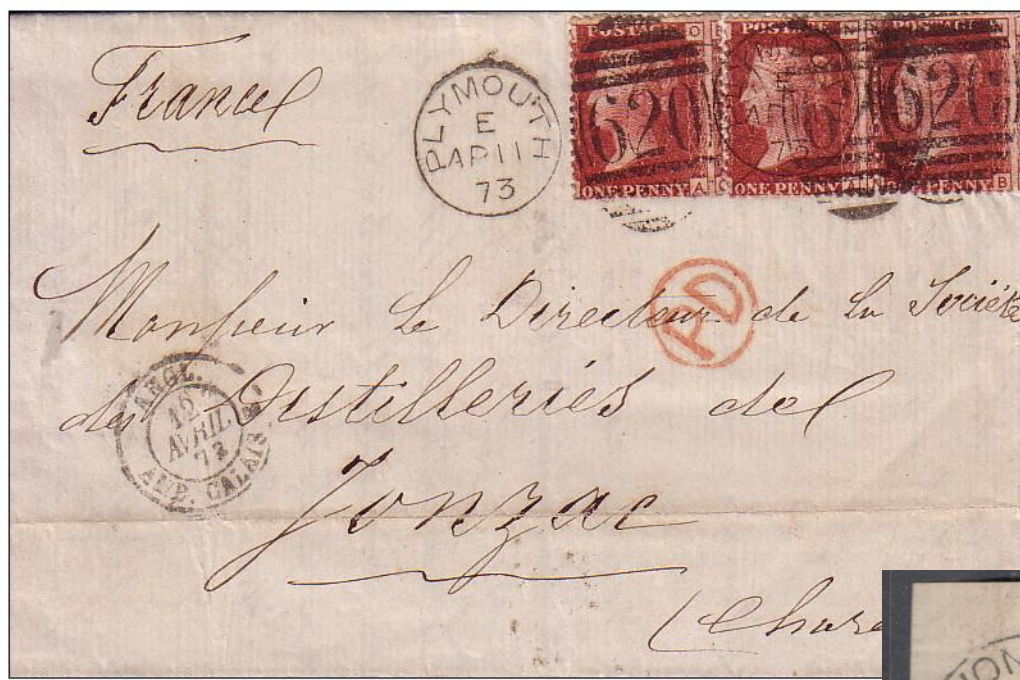 France
PLYMOUTH
E
AP 11
73
POSTAGE
620
ONE PENNY A
POSTAGE
ONE PENNY A
POSTAGE
620
PENNY B
PD
Monsieur Le Directeur de la Société
des Distilleries de
Jonzac
ANGL.
12
AVRIL
73
AMB. CALAIS